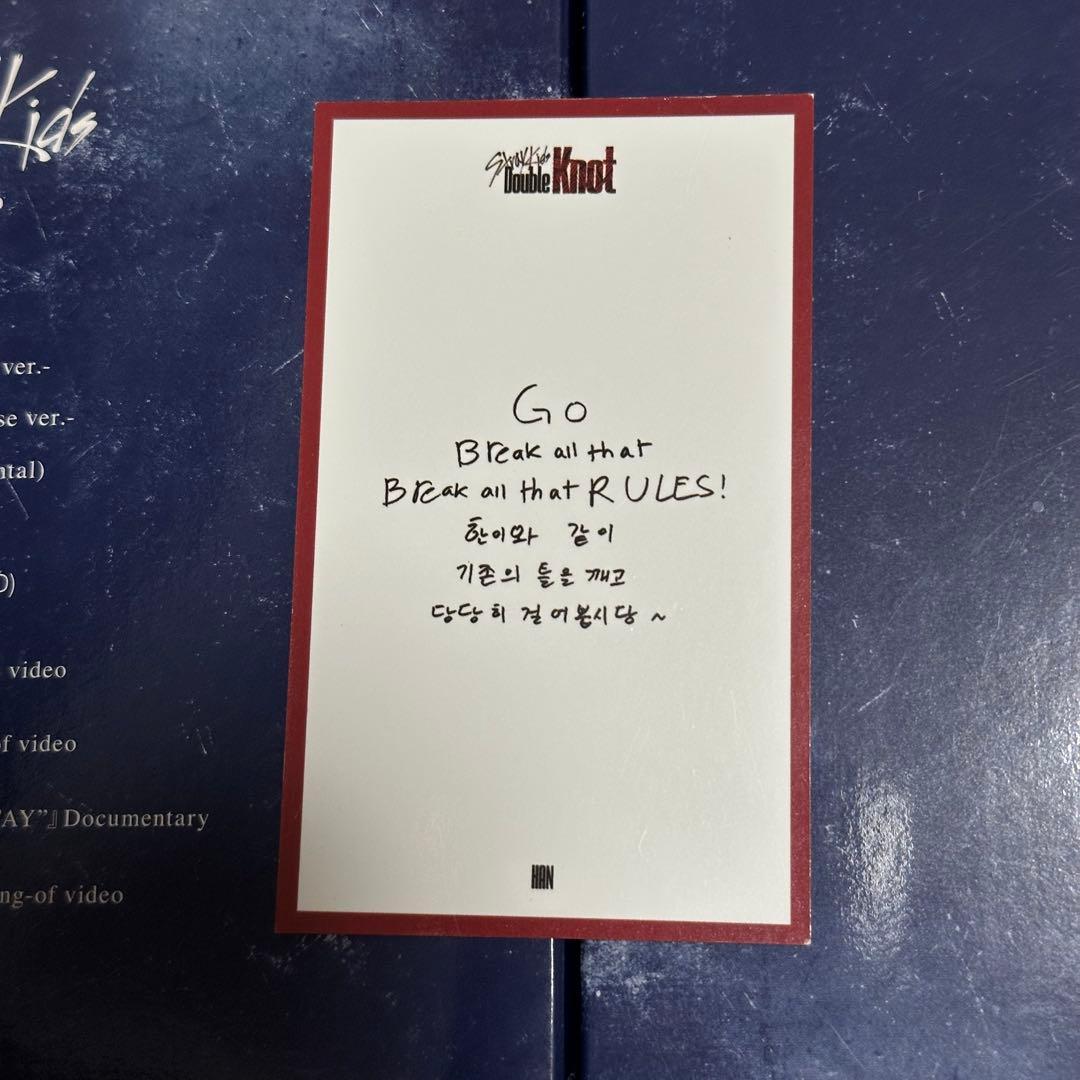 Kids
ver.-
se ver.-
ntal)
D)
video
of video
AY”』Documentary
ng-of video
Stray Kids
Double Knot
Go
Break all that
Break all that RULES!
한이와 같이
기존의 틀을 깨고
당당히 걸어봅시당 ~
HAN